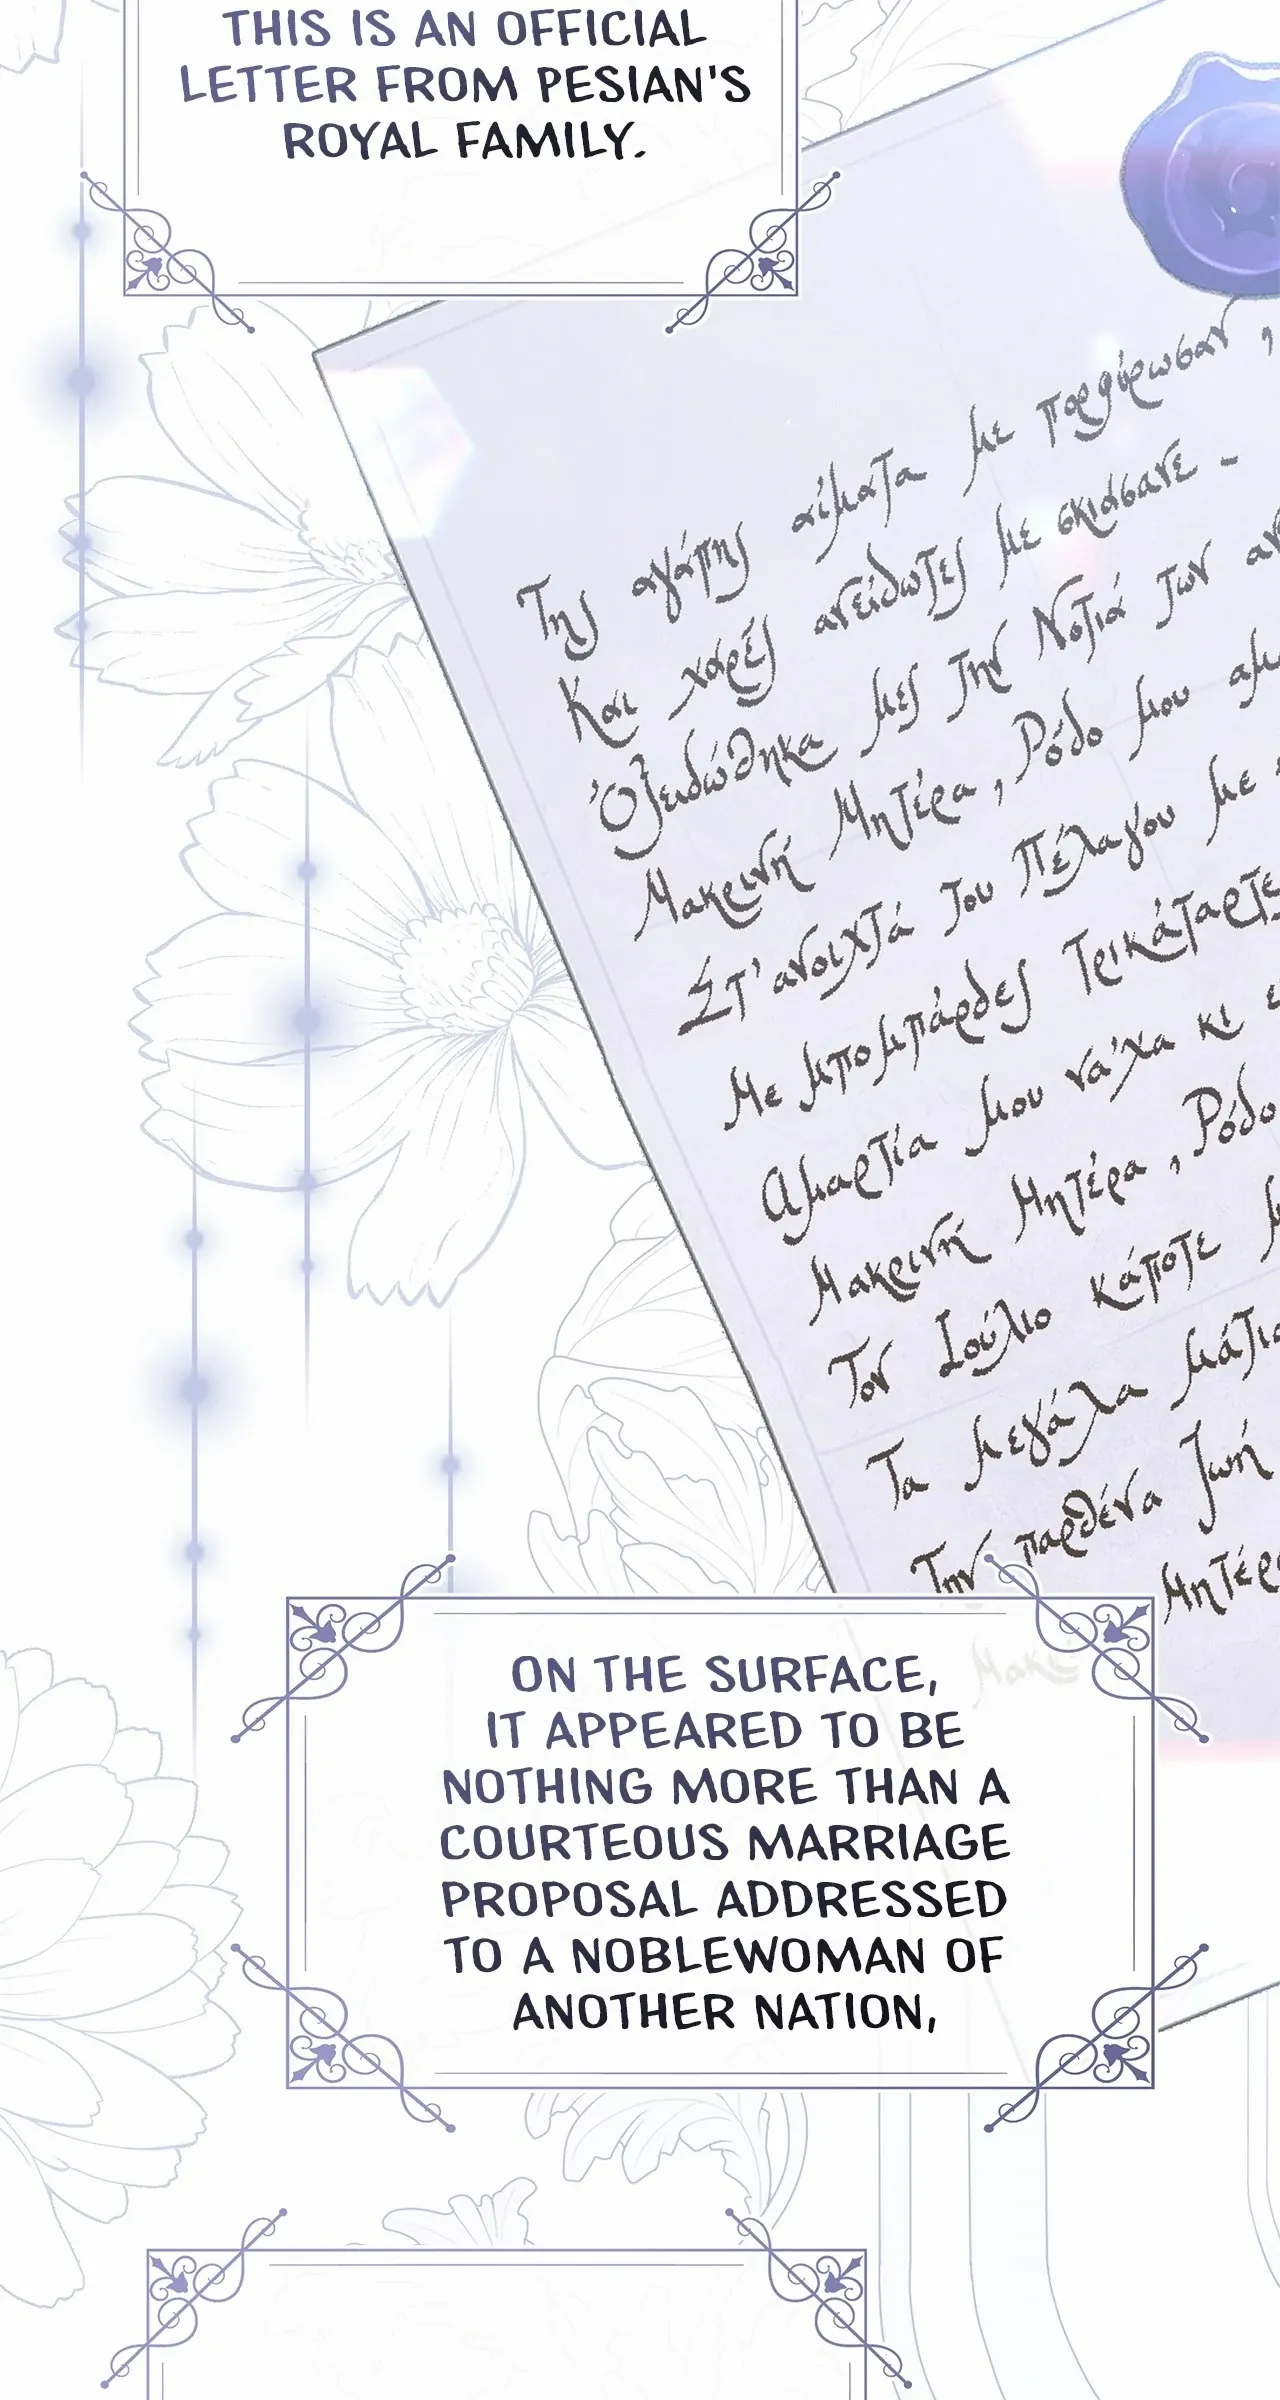 THIS IS AN OFFICIAL
LETTER FROM PESIAN'S
ROYAL FAMILY.
Της αγάπης αίματα με πορφύρωσαν,
Και χαρές ανείδωτες με σκιάσανε -
Οξειδώθηκα μες την Νοτιά των
Μακρινή Μητέρα, Ρόδο μου
Στ' ανοιχτά του Πέλαγου με
Με μπομπάρδες τρικάταρτε
Αμαρτία μου νά'χα κι
Μακρινή Μητέρα, Ρόδο
Τον Ιούλιο κάποτε
Τα μεγάλα μάτια
Την παρθένα ζωή
Μητέρα
ON THE SURFACE,
IT APPEARED TO BE
NOTHING MORE THAN A
COURTEOUS MARRIAGE
PROPOSAL ADDRESSED
TO A NOBLEWOMAN OF
ANOTHER NATION,